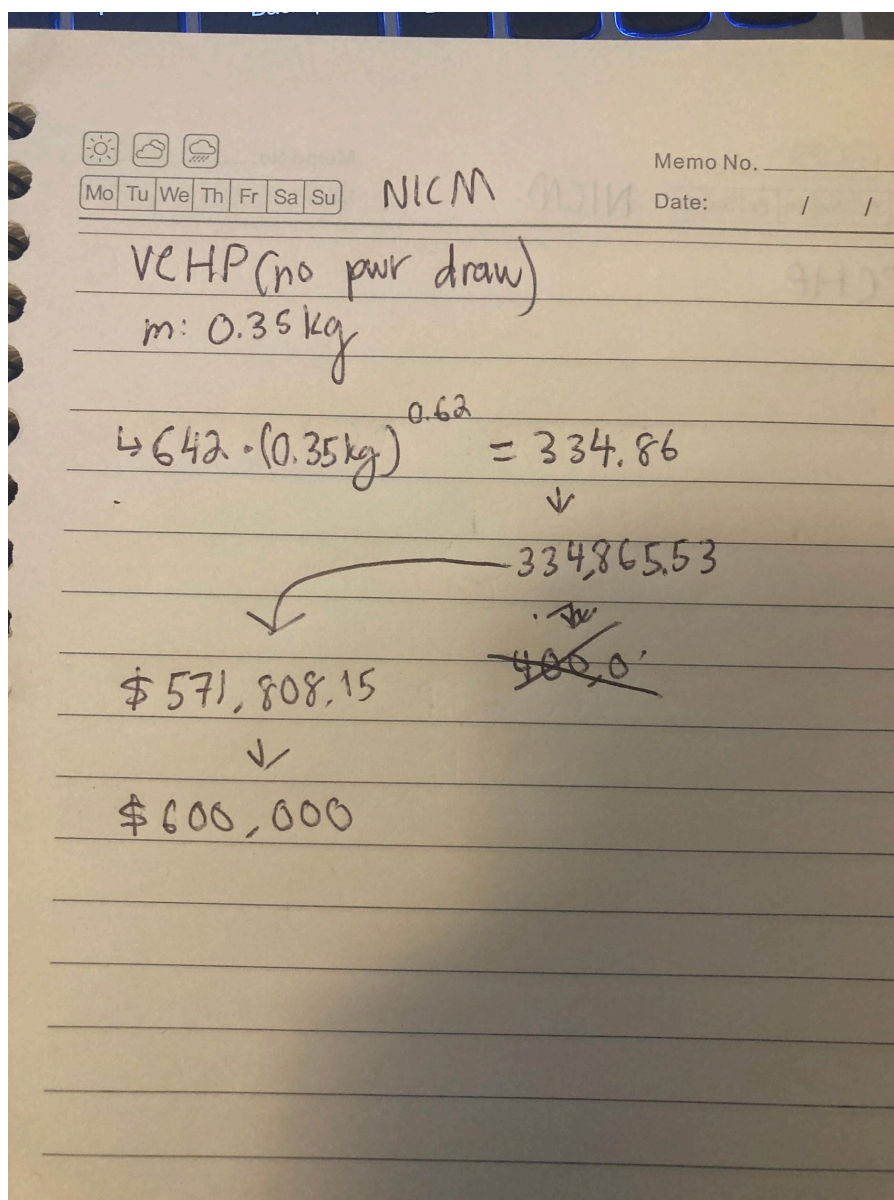 Mo Tu We Th Fr Sa Su
NICM
Memo No.
Date: / /
VCHP (no pwr draw)
m: 0.35 kg
↳ 642 · (0.35kg)^0.62 = 334.86
↓
334,865.53
$571,808.15
↓
$600,000